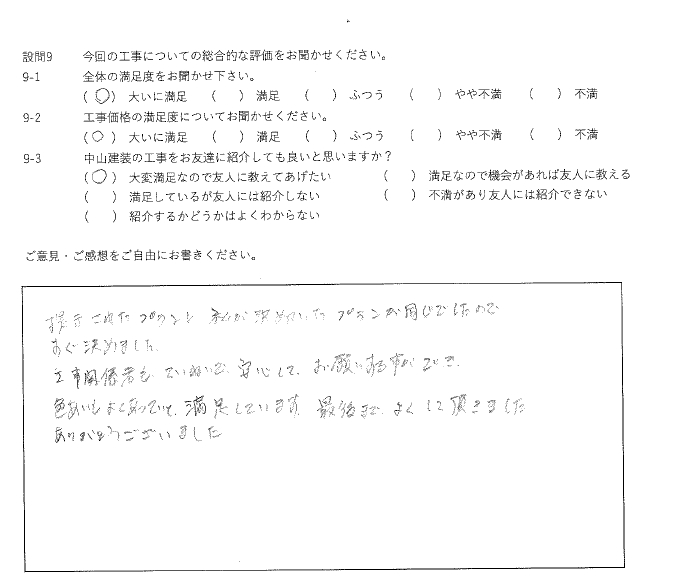 設問9　今回の工事についての総合的な評価をお聞かせください。
9-1　全体の満足度をお聞かせ下さい。
(○) 大いに満足　( ) 満足　( ) ふつう　( ) やや不満　( ) 不満
9-2　工事価格の満足度についてお聞かせください。
(○) 大いに満足　( ) 満足　( ) ふつう　( ) やや不満　( ) 不満
9-3　中山建装の工事をお友達に紹介しても良いと思いますか？
(○) 大変満足なので友人に教えてあげたい　( ) 満足なので機会があれば友人に教える
( ) 満足しているが友人には紹介しない　( ) 不満があり友人には紹介できない
( ) 紹介するかどうかはよくわからない
ご意見・ご感想をご自由にお書きください。
提示されたプランと 私が決めていたプランが同じでしたので
すぐ決めました。
工事関係者も ていねいで、安心して、お願いする事ができ、
色あいもよくあっていて、満足しています。最後まで よくして頂きました
ありがとうございました